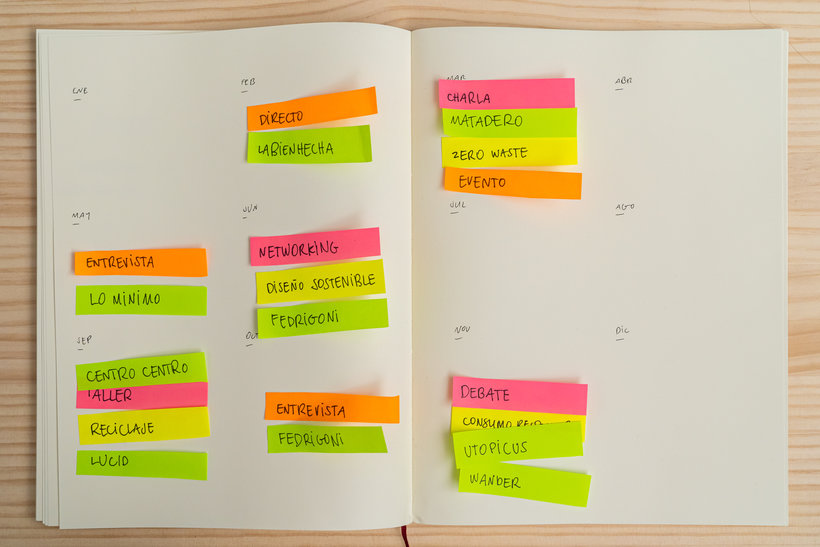 ENE
FEB
DIRECTO
LABIENHECHA
MAR
CHARLA
MATADERO
ZERO WASTE
EVENTO
ABR
MAY
ENTREVISTA
LO MINIMO
JUN
NETWORKING
DISEÑO SOSTENIBLE
FEDRIGONI
JUL
AGO
SEP
CENTRO CENTRO
TALLER
RECICLAJE
LUCID
OCT
ENTREVISTA
FEDRIGONI
NOV
DEBATE
CONSUMO
UTOPICUS
WANDER
DIC